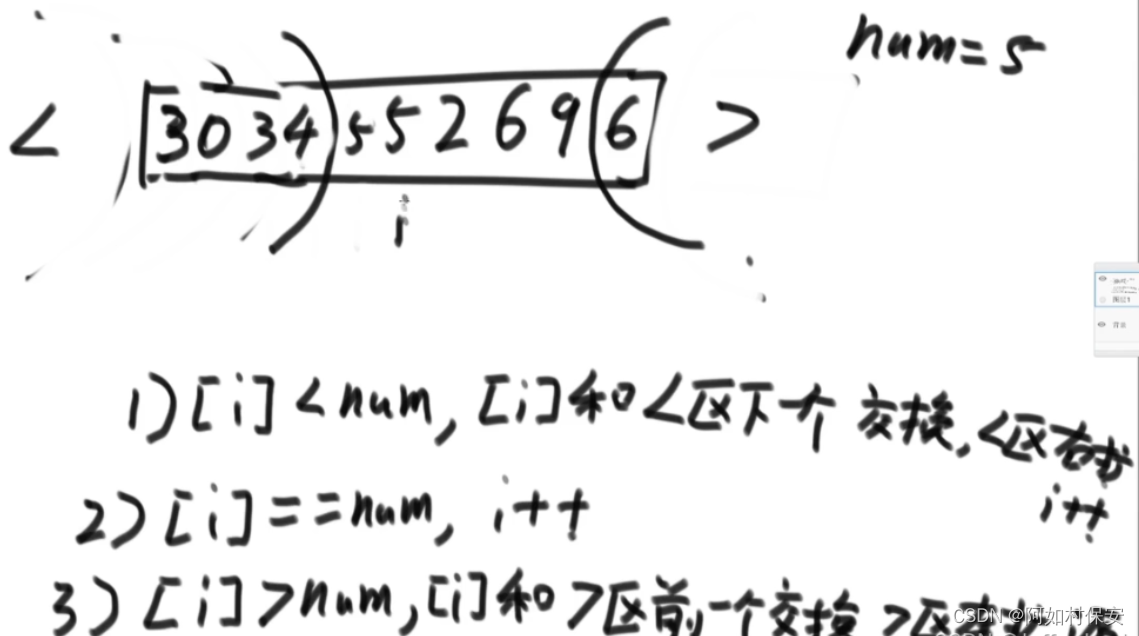 num=5
< 3 0 3 4 5 5 2 6 9 6 >
i
1) [i] < num, [i]和<区下一个 交换, <区右扩
i++
2) [i] == num, i++
3) [i] > num, [i]和 >区前一个交换 >区
CSDN @阿如村保安